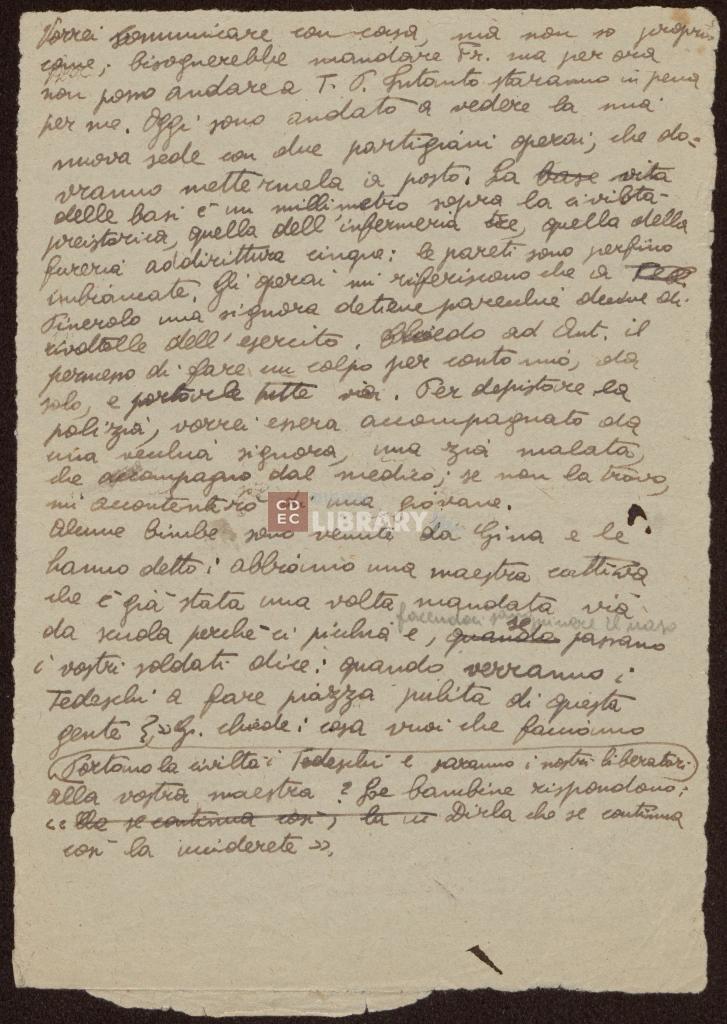 Vorrei comunicare con casa, ma non so proprio
come; bisognerebbe mandare Fr. ma per ora
non posso andare a T. P. Intanto staranno in pena
per me. Oggi sono andato a vedere la mia
nuova sede con due partigiani operai, che do=
vranno mettermela a posto. La base vita
delle basi è un millimetro sopra la civiltà
preistorica, quella dell'infermeria tre, quella della
fureria addirittura cinque: le pareti sono perfino
imbiancate. Gli operai mi riferiscono che a
Pinerolo una signora detiene parecchie decine di
rivoltelle dell'esercito. Chiedo ad Ant. il
permesso di fare un colpo per conto mio, da
solo, e portarle tutte via. Per depistare la
polizia, vorrei essere accompagnato da
una vecchia signora, una zia malata,
che accompagno dal medico; se non la trovo,
mi accontenterò di una giovane.
CDEC LIBRARY
Alcune bimbe sono venute da Gina e le
hanno detto: abbiamo una maestra cattiva
che è già stata una volta mandata via
facendoci sanguinare il naso
da scuola perché ci picchia e, quando se passano
i vostri soldati dice: quando verranno i
Tedeschi a fare piazza pulita di questa
gente?» G. chiede: cosa vuoi che facciamo
Portano la civiltà i Tedeschi e saranno i nostri liberatori
alla vostra maestra? Le bambine rispondono:
«se continua così, la Dirla che se continua
così la ucciderete».